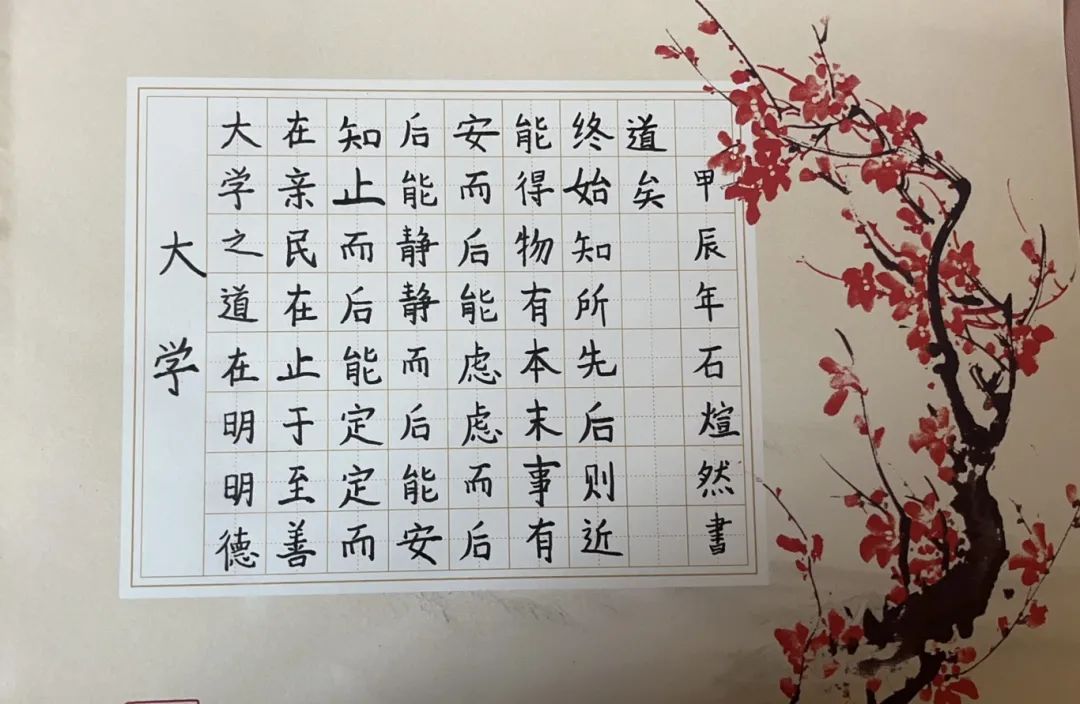 大学
大学之道在明明德
在亲民在止于至善
知止而后能定定而
后能静静而后能安
安而后能虑虑而后
能得物有本末事有
终始知所先后则近
道矣
甲辰年石煊然書